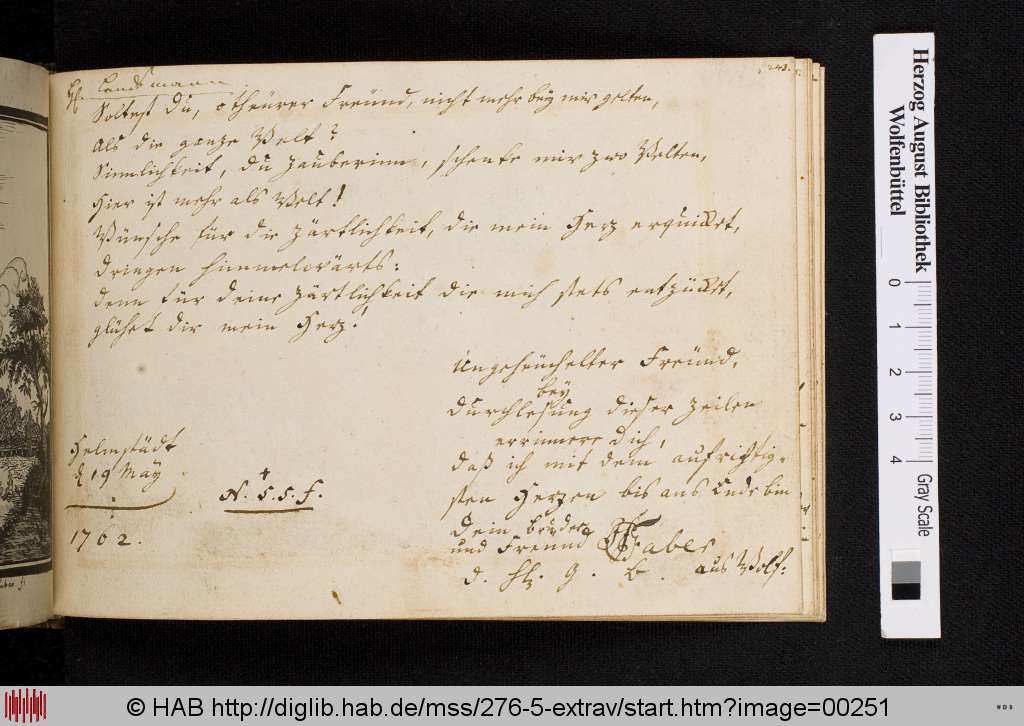 Landsmann
243.
Soltest du, o theürer Freünd, nicht mehr bey mir gelten,
Als die ganze Welt?
Sinnlichkeit, du Zauberinn, schenke mir zwo Welten,
Hier ist mehr als Welt!
Wünsche für die Zärtlichkeit, die mein Herz erquickt,
dringen himmelwärts:
denn für deine Zärtlichkeit die mich stets entzückt,
glühet dir mein Herz.
Ungeheüchelter Freünd,
bey
durchlesung dieser Zeilen
errinnere dich,
daß ich mit dem aufrichtig-
sten Herzen bis ans Ende bin
Dein brüder
und Freünd Faber
d. G. b. aus Wolf:
Helmstädt
d 19 May
1762.
N. S. S. F.
Herzog August Bibliothek
Wolfenbüttel
0
1
2
3
4
Gray Scale
© HAB http://diglib.hab.de/mss/276-5-extrav/start.htm?image=00251